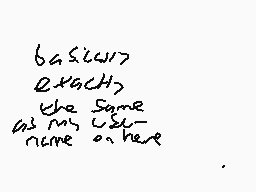 basically
exactly
the same
as my user-
name on here